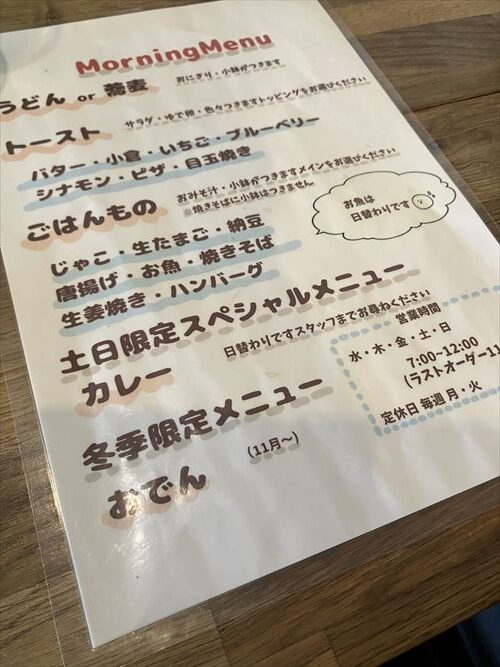 MorningMenu
うどん or 蕎麦
おにぎり・小鉢がつきます
トースト
サラダ・ゆで卵・色々つきますトッピングをお選びください
バター・小倉・いちご・ブルーベリー
シナモン・ピザ・目玉焼き
ごはんもの
おみそ汁・小鉢がつきますメインをお選びください
※焼きそばに小鉢はつきません
じゃこ・生たまご・納豆
唐揚げ・お魚・焼きそば
生姜焼き・ハンバーグ
お魚は
日替わりです
土日限定スペシャルメニュー
日替わりですスタッフまでお尋ねください
カレー
冬季限定メニュー
(11月〜)
おでん
営業時間
水・木・金・土・日
7:00~12:00
(ラストオーダー11
定休日 毎週 月・火